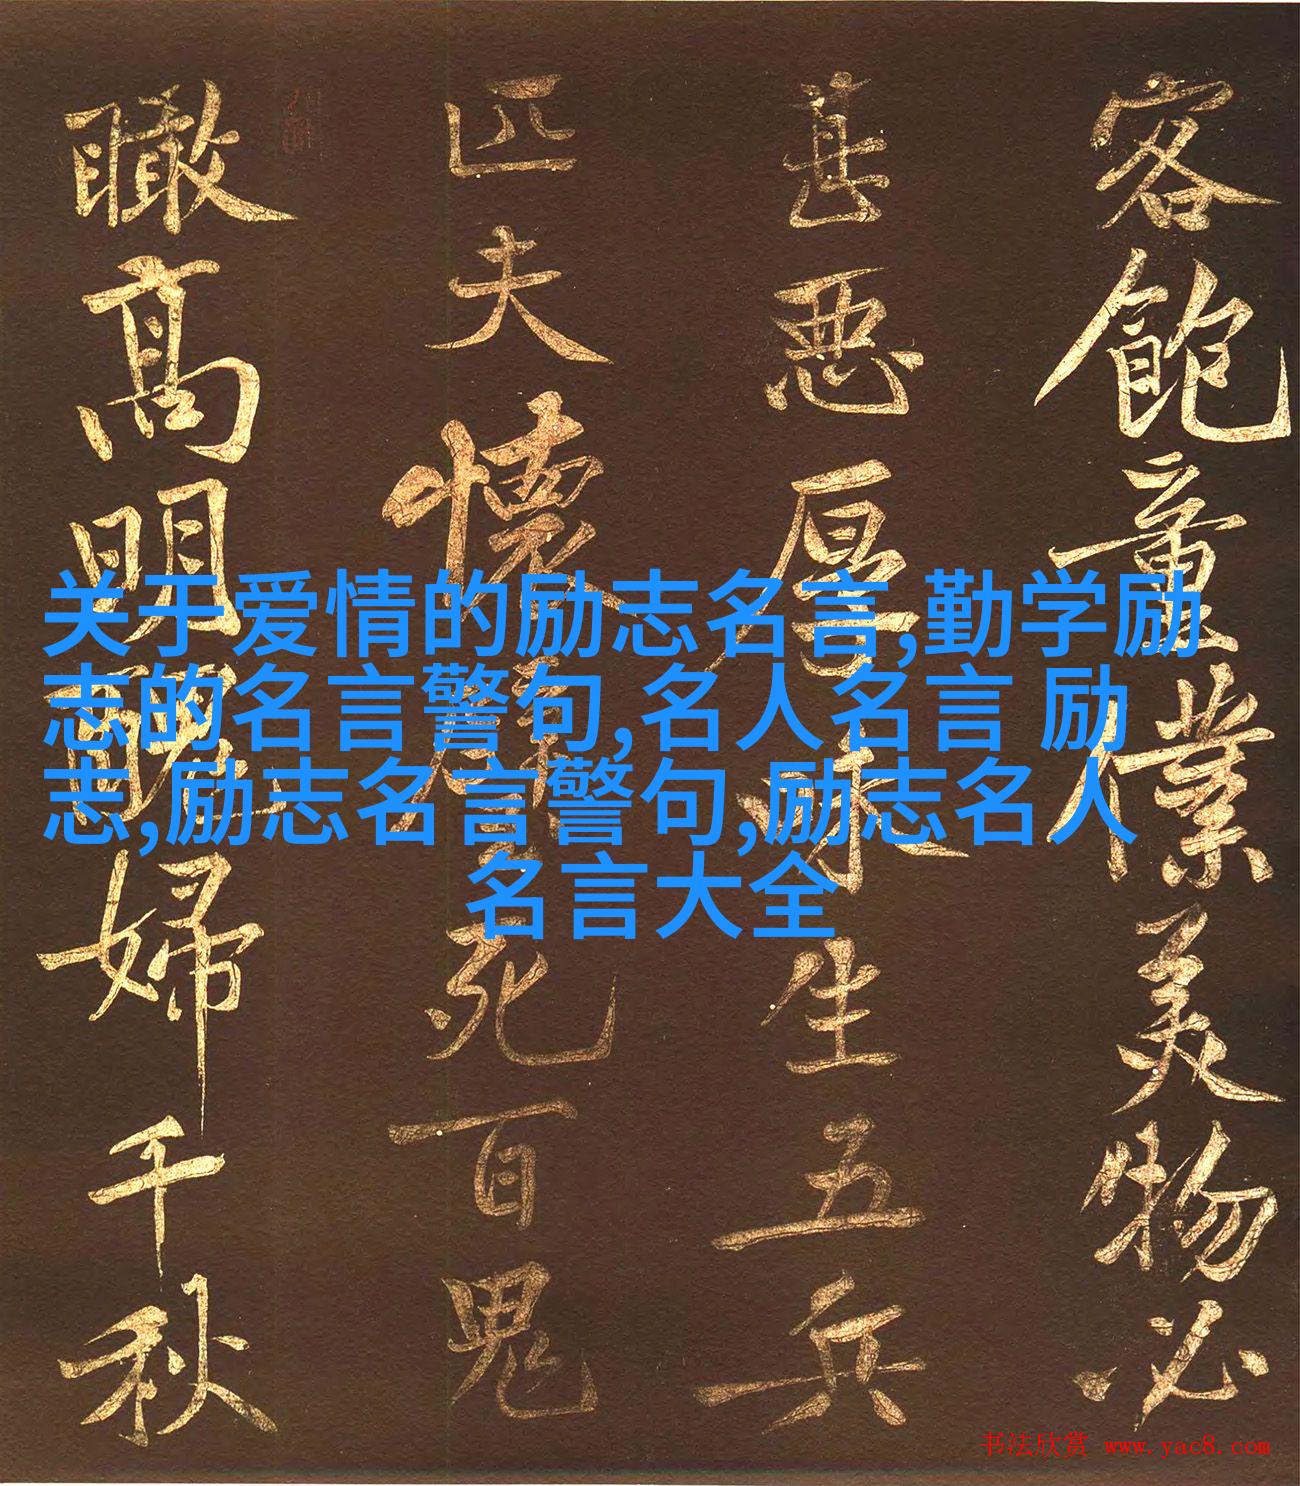 客飽童僕美物必
甚惡厚味生五兵
匹夫懷璧死百鬼
瞰高明醜婦千秋
关于爱情的励志名言,勤学励
志的名言警句,名人名言 励
志,励志名言警句,励志名人
名言大全
书法欣赏 www.yac8.com